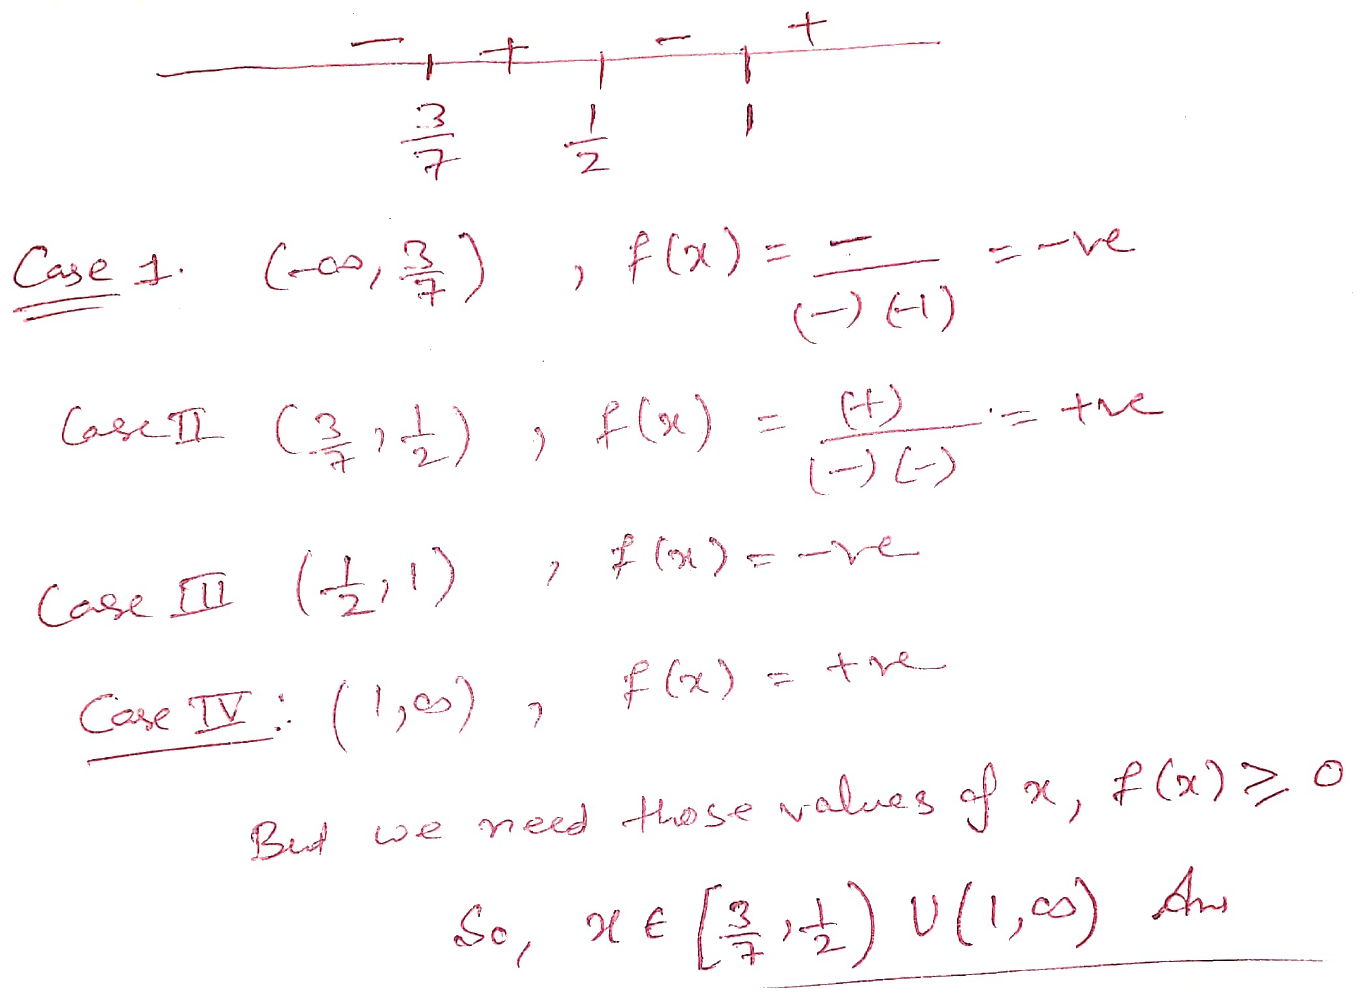 − + − +
3/7 1/2 1
Case 1. (-∞, 3/7) , f(x) = −/(−)(-1) = -ve
Case II (3/7, 1/2) , f(x) = (+)/(−)(−) = +ve
Case III (1/2, 1) , f(x) = -ve
Case IV : (1, ∞) , f(x) = +ve
But we need those values of x, f(x) ≥ 0
So, x ∈ [3/7, 1/2) ∪ (1, ∞) Ans